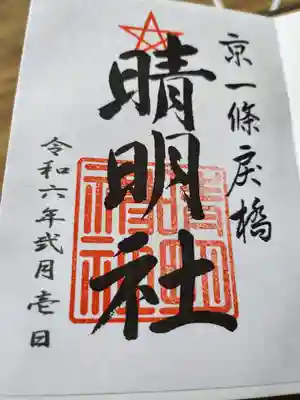 京一條戻橋
晴明社
晴明神社
令和六年弐月壱日